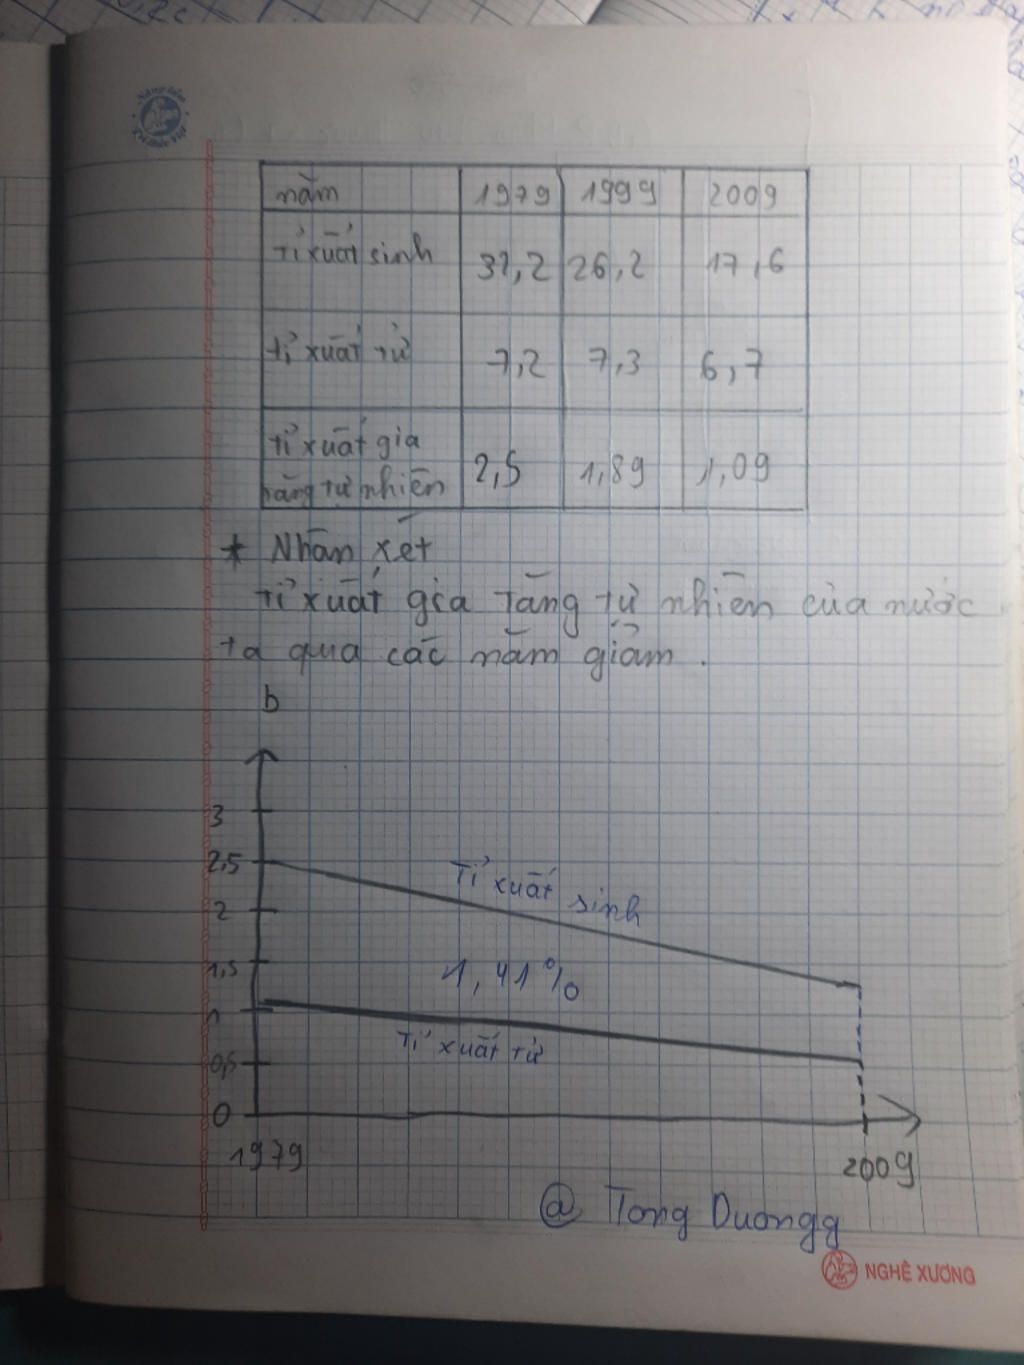 năm 1979 1999 2009
Tỉ xuất sinh 32,2 26,2 17,6
tỉ xuất tử 7,2 7,3 6,7
tỉ xuất gia
tăng tự nhiên 2,5 1,89 1,09
* Nhận xét
Tỉ xuất gia tăng tự nhiên của nước
ta qua các năm giảm.
b
3
2,5
Tỉ xuất sinh
2
1,5
1,41%
1
Tỉ xuất tử
0,5
0
1979 2009
@ Tong Duongg
NGHÊ XƯƠNG